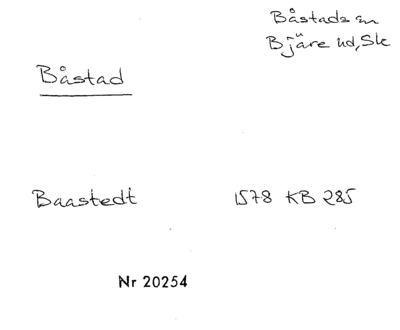 Båstads sn
Bjäre hd, Sk
Båstad
Baastedt 1578 KB 285
Nr 20254